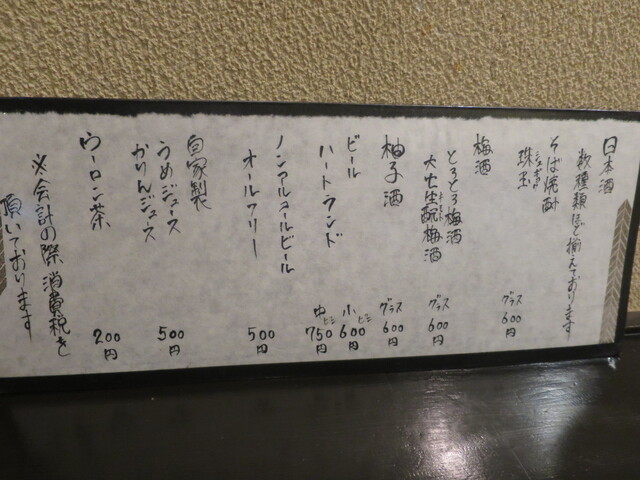 日本酒
数種類ほど揃えております
そば焼酎
珠玉 グラス 600円
梅酒
とろとろ梅酒
大七生酛梅酒 グラス 600円
柚子酒 グラス 600円
ビール 小ビン 600円
ハートランド 中ビン 750円
ノンアルコールビール
オールフリー 500円
自家製
うめジュース
かりんジュース 500円
ウーロン茶 200円
※会計の際消費税を
頂いております